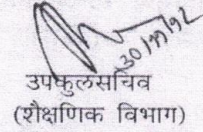 30/11/92
उपकुलसचिव
(शैक्षणिक विभाग)